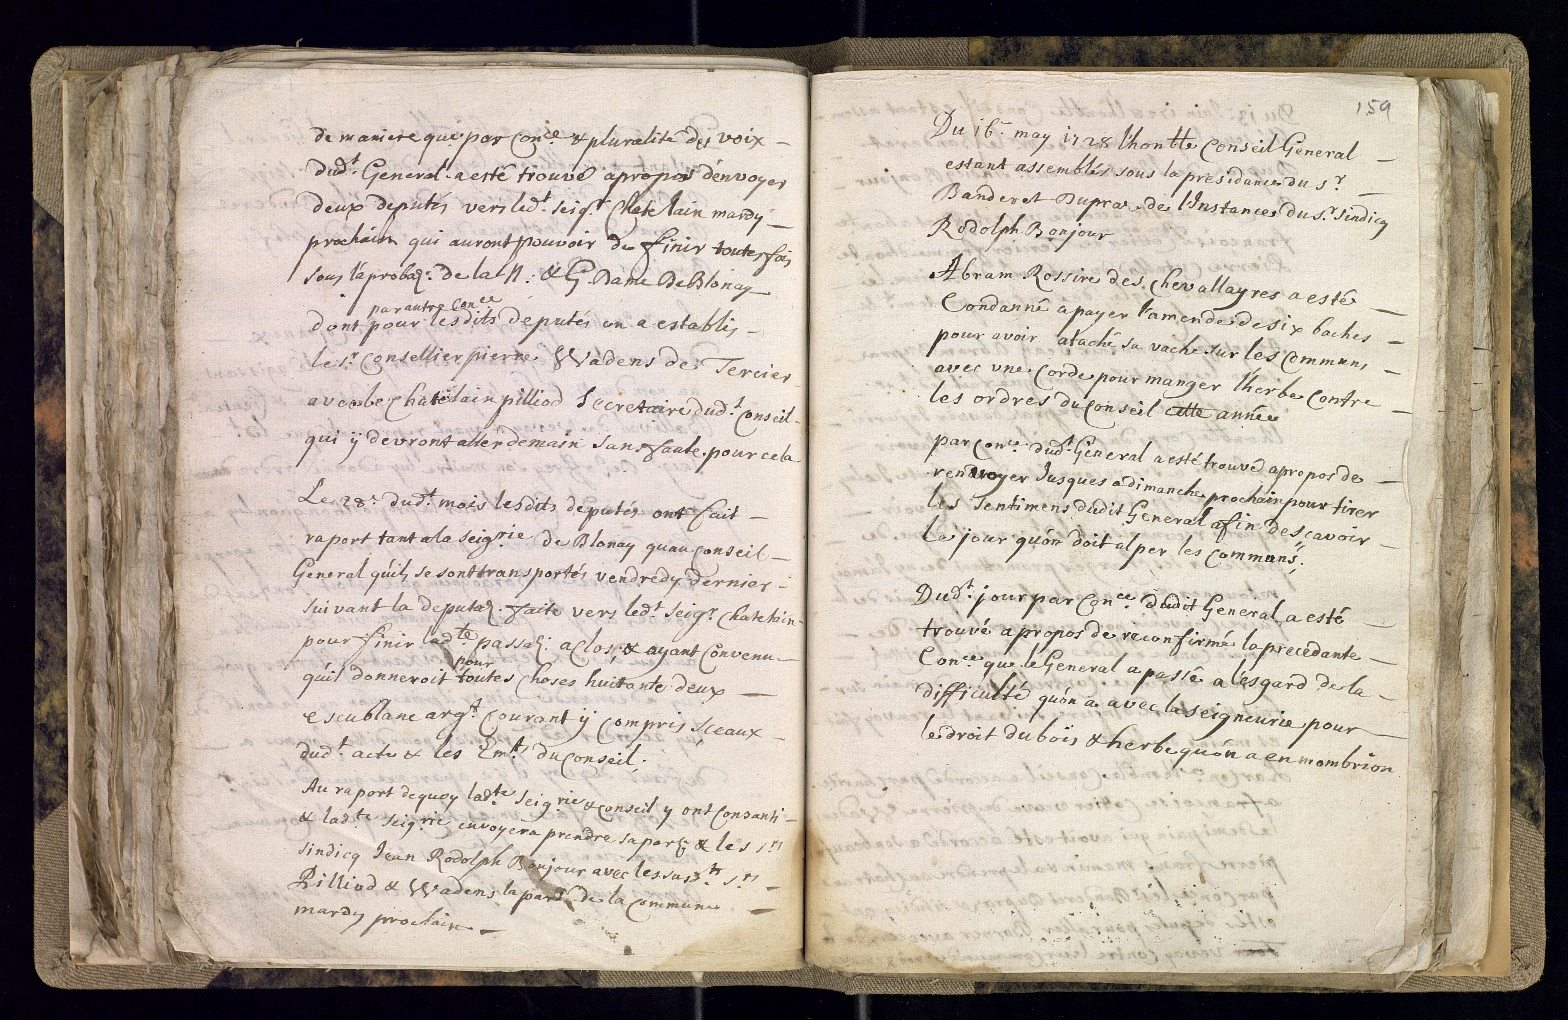 de maniere que par Con.ce & pluralité des voix –
dud.t General a esté trouvé apropos d'envoyer
deux deputés vers led.t seig.r Chatelain mardy –
prochain qui auront pouvoir de finir toutesfois
sous l'aprobaõ: de la N. & G. Dame De Blonay
par autre Con.ce
dont pour lesdits deputés on a establis –
le s.r Consellier pierre Wadens des Tercier
avec le Chatélain pilliod Secretaire dud.t Conseil –
qui ÿ devront aller demain sans faute pour cela
Le 28.e dud.t mois lesdits deputés ont fait –
raport tant a la Seig.rie de Blonay quau Conseil –
General qu'ils se sont transportés vendredy dernier –
suivant la deputaõ. faite vers led.t seig.r Chatelain –
pour finir lad.te passaõ: a clos, & ayant Convenu –
pour
qu'il donneroit toutes Choses huittante deux –
escublanc arg.t Courant ÿ Compris Sceaux –
dud.t acte & les Em.ts du Conseil.
Au raport de quoy lad.te Seigrie & Conseil y ont Consanti –
& lad.te seig.rie envoyera prendre sa part & les s.rs
sindicq Jean Rodolph Bonjour avec les susd.ts s.rs –
Pilliod & Wadens la part de la Commune –
mardy prochain –
159
Du 16.e may 1728 lhon.ble Conseil General –
estant assemblés sous la presidance du s.r –
Banderet Dupraz de l'Instance du s.r Sindicq
Rodolph Bonjour
Abram Rossire des Chevallayres a esté
Condanné à payer l'amende de six baches –
pour avoir ataché sa vache sur les Communs –
avec une Corde pour manger l'herbe Contre –
les ordres du Conseil cette année
par Con.ce dud.t General a esté trouvé apropos de –
renvoyer Jusques a dimanche prochain pour tirer
les sentimens dudit General afin de sçavoir –
le jour qu'on doit alper les Communs.
Dud.t jour par Con.ce dudit General a esté –
trouvé apropos de reconfirmé la precedante –
Con.ce que le General a passée a lesgard de la –
difficulté qu'on a avec la seigneurie pour –
le droit du bois & herbe qu'on a en mombrion